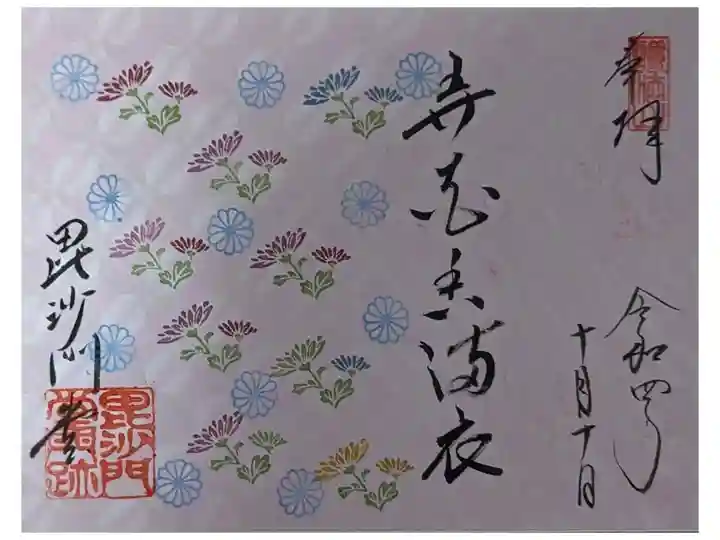 奉拝
令和四年
十月十日
弄花香満衣
毘沙門堂
毘沙門
堂門跡